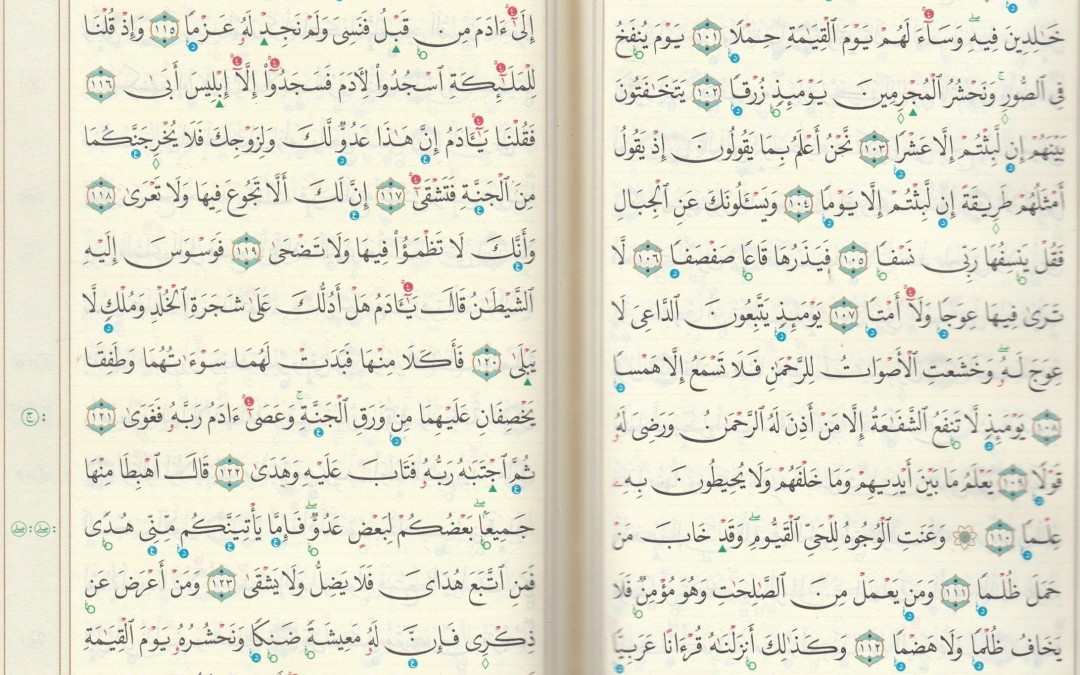 خَـٰلِدِينَ فِيهِ ۖ وَسَآءَ لَهُمْ يَوْمَ ٱلْقِيَـٰمَةِ حِمْلًا ١٠١ يَوْمَ يُنفَخُ
فِى ٱلصُّورِ ۚ وَنَحْشُرُ ٱلْمُجْرِمِينَ يَوْمَئِذٍ زُرْقًا ١٠٢ يَتَخَـٰفَتُونَ
بَيْنَهُمْ إِن لَّبِثْتُمْ إِلَّا عَشْرًا ١٠٣ نَّحْنُ أَعْلَمُ بِمَا يَقُولُونَ إِذْ يَقُولُ
أَمْثَلُهُمْ طَرِيقَةً إِن لَّبِثْتُمْ إِلَّا يَوْمًا ١٠٤ وَيَسْـَٔلُونَكَ عَنِ ٱلْجِبَالِ
فَقُلْ يَنسِفُهَا رَبِّى نَسْفًا ١٠٥ فَيَذَرُهَا قَاعًا صَفْصَفًا ١٠٦ لَّا
تَرَىٰ فِيهَا عِوَجًا وَلَآ أَمْتًا ١٠٧ يَوْمَئِذٍ يَتَّبِعُونَ ٱلدَّاعِىَ لَا
عِوَجَ لَهُۥ ۖ وَخَشَعَتِ ٱلْأَصْوَاتُ لِلرَّحْمَـٰنِ فَلَا تَسْمَعُ إِلَّا هَمْسًا
١٠٨ يَوْمَئِذٍ لَّا تَنفَعُ ٱلشَّفَـٰعَةُ إِلَّا مَنْ أَذِنَ لَهُ ٱلرَّحْمَـٰنُ وَرَضِىَ لَهُۥ
قَوْلًا ١٠٩ يَعْلَمُ مَا بَيْنَ أَيْدِيهِمْ وَمَا خَلْفَهُمْ وَلَا يُحِيطُونَ بِهِۦ
عِلْمًا ١١٠ ۞ وَعَنَتِ ٱلْوُجُوهُ لِلْحَىِّ ٱلْقَيُّومِ ۖ وَقَدْ خَابَ مَنْ
حَمَلَ ظُلْمًا ١١١ وَمَن يَعْمَلْ مِنَ ٱلصَّـٰلِحَـٰتِ وَهُوَ مُؤْمِنٌ فَلَا
يَخَافُ ظُلْمًا وَلَا هَضْمًا ١١٢ وَكَذَٰلِكَ أَنزَلْنَـٰهُ قُرْءَانًا عَرَبِيًّا
إِلَىٰٓ ءَادَمَ مِن قَبْلُ فَنَسِىَ وَلَمْ نَجِدْ لَهُۥ عَزْمًا ١١٥ وَإِذْ قُلْنَا
لِلْمَلَـٰٓئِكَةِ ٱسْجُدُوا۟ لِـَٔادَمَ فَسَجَدُوٓا۟ إِلَّآ إِبْلِيسَ أَبَىٰ ١١٦
فَقُلْنَا يَـٰٓـَٔادَمُ إِنَّ هَـٰذَا عَدُوٌّ لَّكَ وَلِزَوْجِكَ فَلَا يُخْرِجَنَّكُمَا
مِنَ ٱلْجَنَّةِ فَتَشْقَىٰٓ ١١٧ إِنَّ لَكَ أَلَّا تَجُوعَ فِيهَا وَلَا تَعْرَىٰ ١١٨
وَأَنَّكَ لَا تَظْمَؤُا۟ فِيهَا وَلَا تَضْحَىٰ ١١٩ فَوَسْوَسَ إِلَيْهِ
ٱلشَّيْطَـٰنُ قَالَ يَـٰٓـَٔادَمُ هَلْ أَدُلُّكَ عَلَىٰ شَجَرَةِ ٱلْخُلْدِ وَمُلْكٍ لَّا
يَبْلَىٰ ١٢٠ فَأَكَلَا مِنْهَا فَبَدَتْ لَهُمَا سَوْءَٰتُهُمَا وَطَفِقَا
يَخْصِفَانِ عَلَيْهِمَا مِن وَرَقِ ٱلْجَنَّةِ ۚ وَعَصَىٰٓ ءَادَمُ رَبَّهُۥ فَغَوَىٰ ١٢١
ثُمَّ ٱجْتَبَـٰهُ رَبُّهُۥ فَتَابَ عَلَيْهِ وَهَدَىٰ ١٢٢ قَالَ ٱهْبِطَا مِنْهَا
جَمِيعًۢا ۖ بَعْضُكُمْ لِبَعْضٍ عَدُوٌّ ۖ فَإِمَّا يَأْتِيَنَّكُم مِّنِّى هُدًى
فَمَنِ ٱتَّبَعَ هُدَاىَ فَلَا يَضِلُّ وَلَا يَشْقَىٰ ١٢٣ وَمَنْ أَعْرَضَ عَن
ذِكْرِى فَإِنَّ لَهُۥ مَعِيشَةً ضَنكًا وَنَحْشُرُهُۥ يَوْمَ ٱلْقِيَـٰمَةِ
: ج
: صلى : صلى